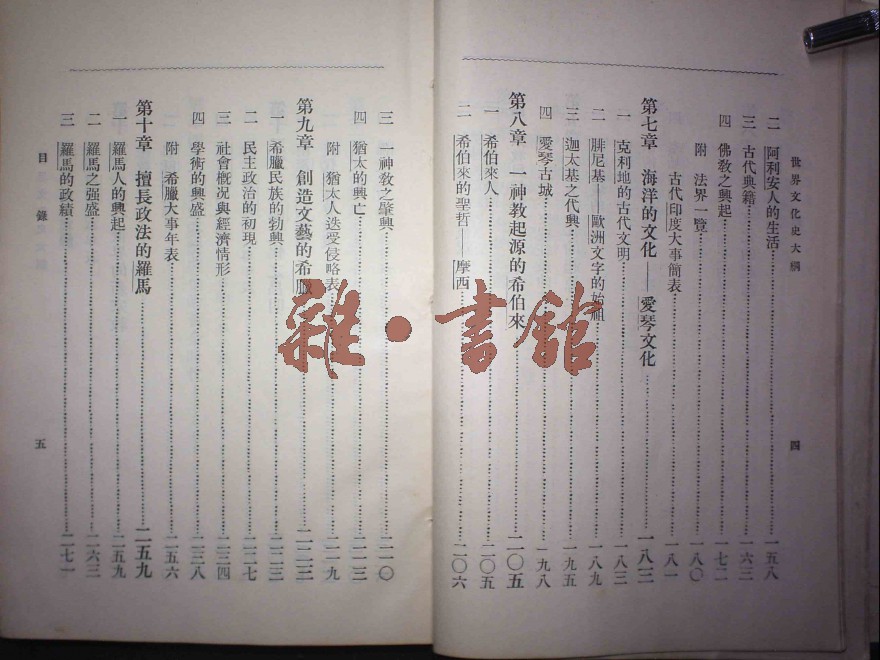 世界文化史大綱
二 阿利安人的生活……一五八
三 古代典籍……一六三
四 佛教之興起……一七二
附 法界一覽……一八〇
古代印度大事簡表……一八一
第七章 海洋的文化——愛琴文化……一八三
一 克利地的古代文明……一八三
二 腓尼基——歐洲文字的始祖……一八九
三 迦太基之代興……一九五
四 愛琴古城……一九八
第八章 一神教起源的希伯來……二〇五
一 希伯來人……二〇五
二 希伯來的聖哲——摩西……二〇六
四
三 一神教之肇興……二一〇
四 猶太的興亡……二一三
附 猶太人迭受侵略表……二一九
第九章 創造文藝的希臘……二二三
一 希臘民族的勃興……二二三
二 民主政治的初現……二二七
三 社會概況與經濟情形……二三四
四 學術的興盛……二三八
附 希臘大事年表……二五六
第十章 擅長政法的羅馬……二五九
一 羅馬人的興起……二五九
二 羅馬之强盛……二六三
三 羅馬的政績……二七一
目錄
五
雜·書館